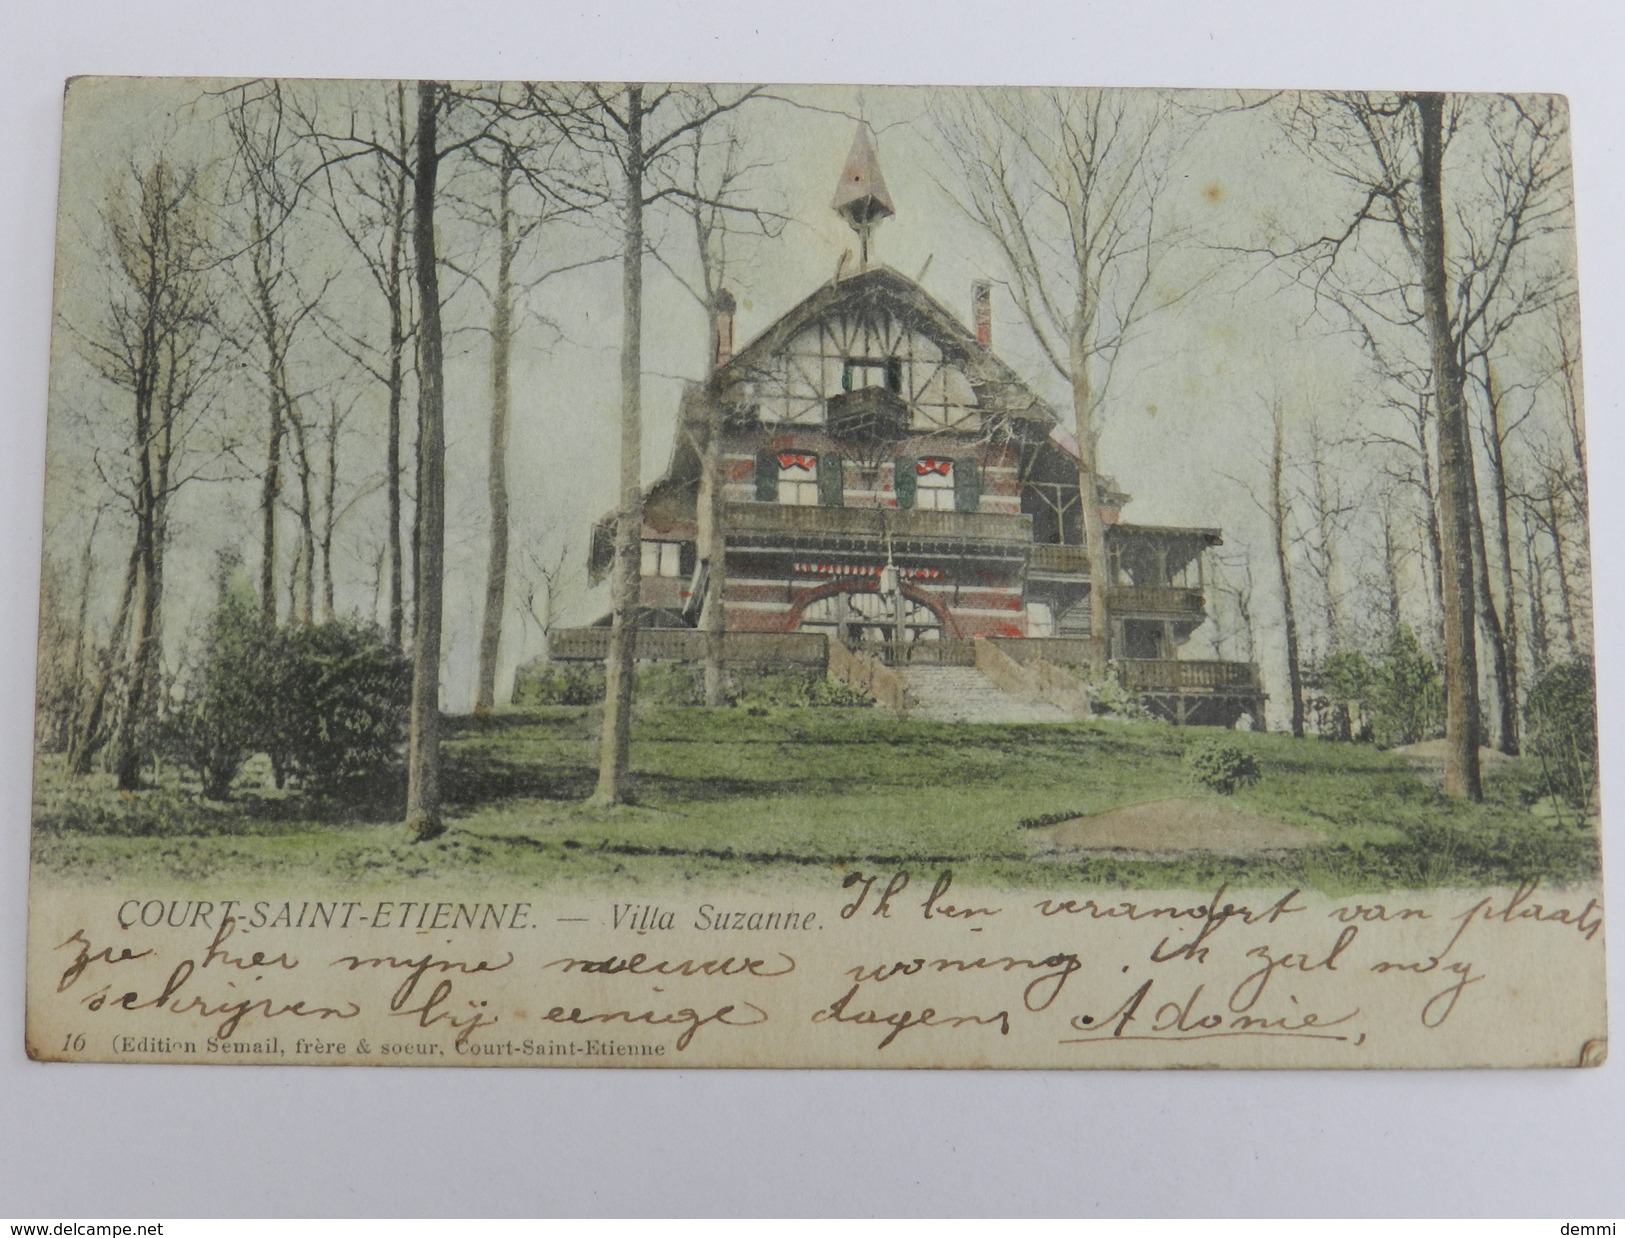 COURT-SAINT-ETIENNE. — Villa Suzanne. Ik ben verandert van plaats
zie hier mijne nieuwe woning. ik zal nog
schrijven bij eenige dagen Adonie,
16 (Edition Semail, frère & soeur, Court-Saint-Etienne
www.delcampe.net
demmi